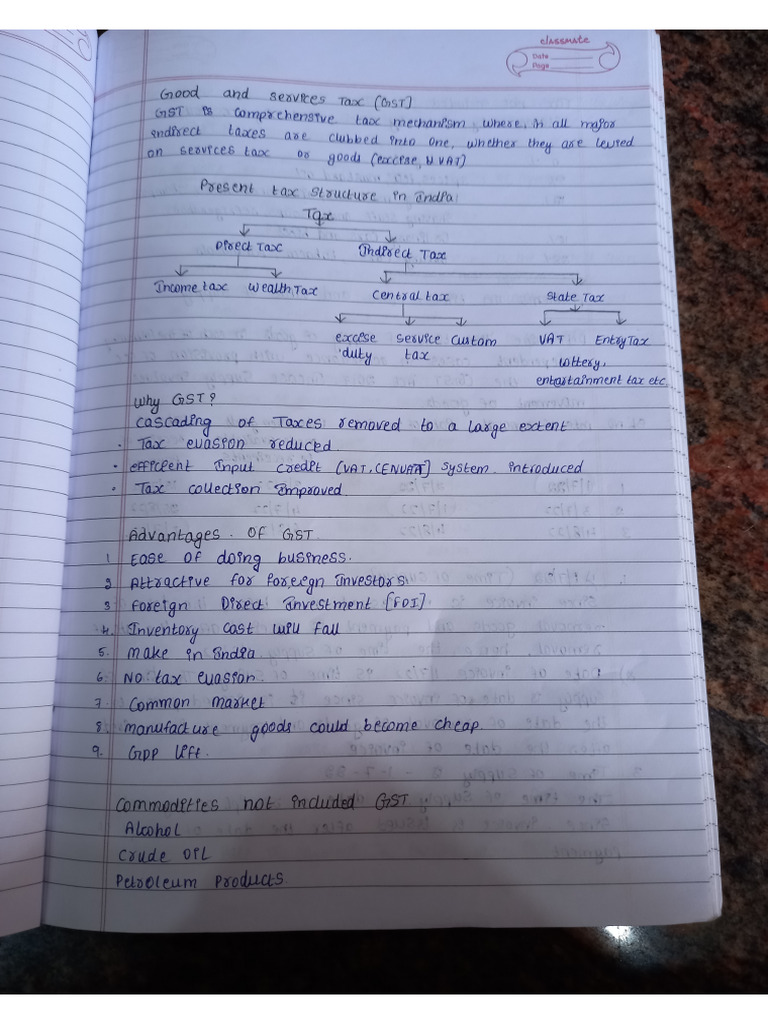 classmate
Date
Page
Good and services Tax (GST)
GST is comprehensive tax mechanism where, in all major
indirect taxes are clubbed into one, whether they are levied
on services tax or goods (excise, VAT)
Present tax structure in India
Tax
Direct Tax Indirect Tax
Income tax Wealth Tax Central tax State Tax
excise service custom VAT Entry Tax
duty tax lottery,
entertainment tax etc
Why GST?
Cascading of Taxes removed to a large extent
· Tax evasion reduced
· efficient Input credit (VAT, CENVAT] system introduced
· Tax collection Improved
Advantages of GST
1 Ease of doing business.
2 Attractive for foreign investors
3 Foreign Direct Investment [FDI]
4. Inventory cost will fall
5. Make in India
6 No tax evasion.
7 Common market
8 manufacture goods could become cheap.
9. GDP lift.
Commodities not included GST
Alcohol
Crude Oil
Petroleum Products.